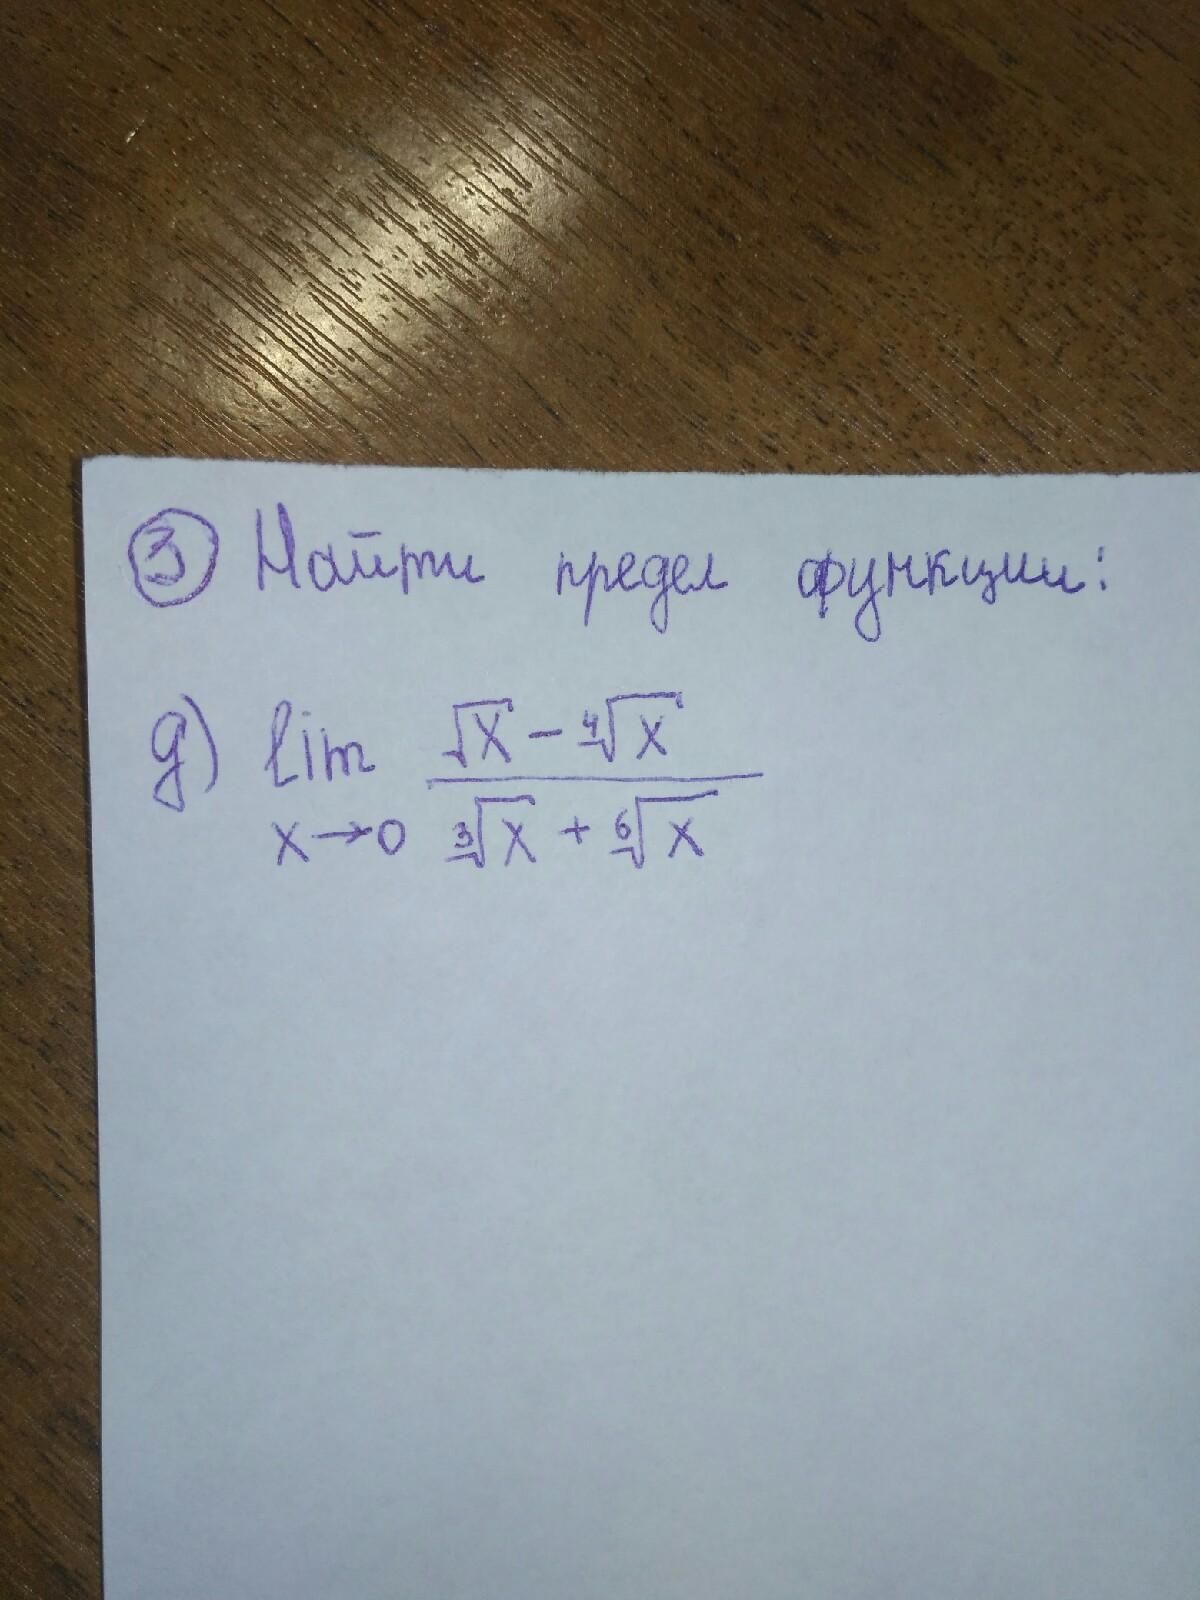 ③ Найти предел функции:
д) lim (√x − ⁴√x) / (³√x + ⁶√x)
x→0